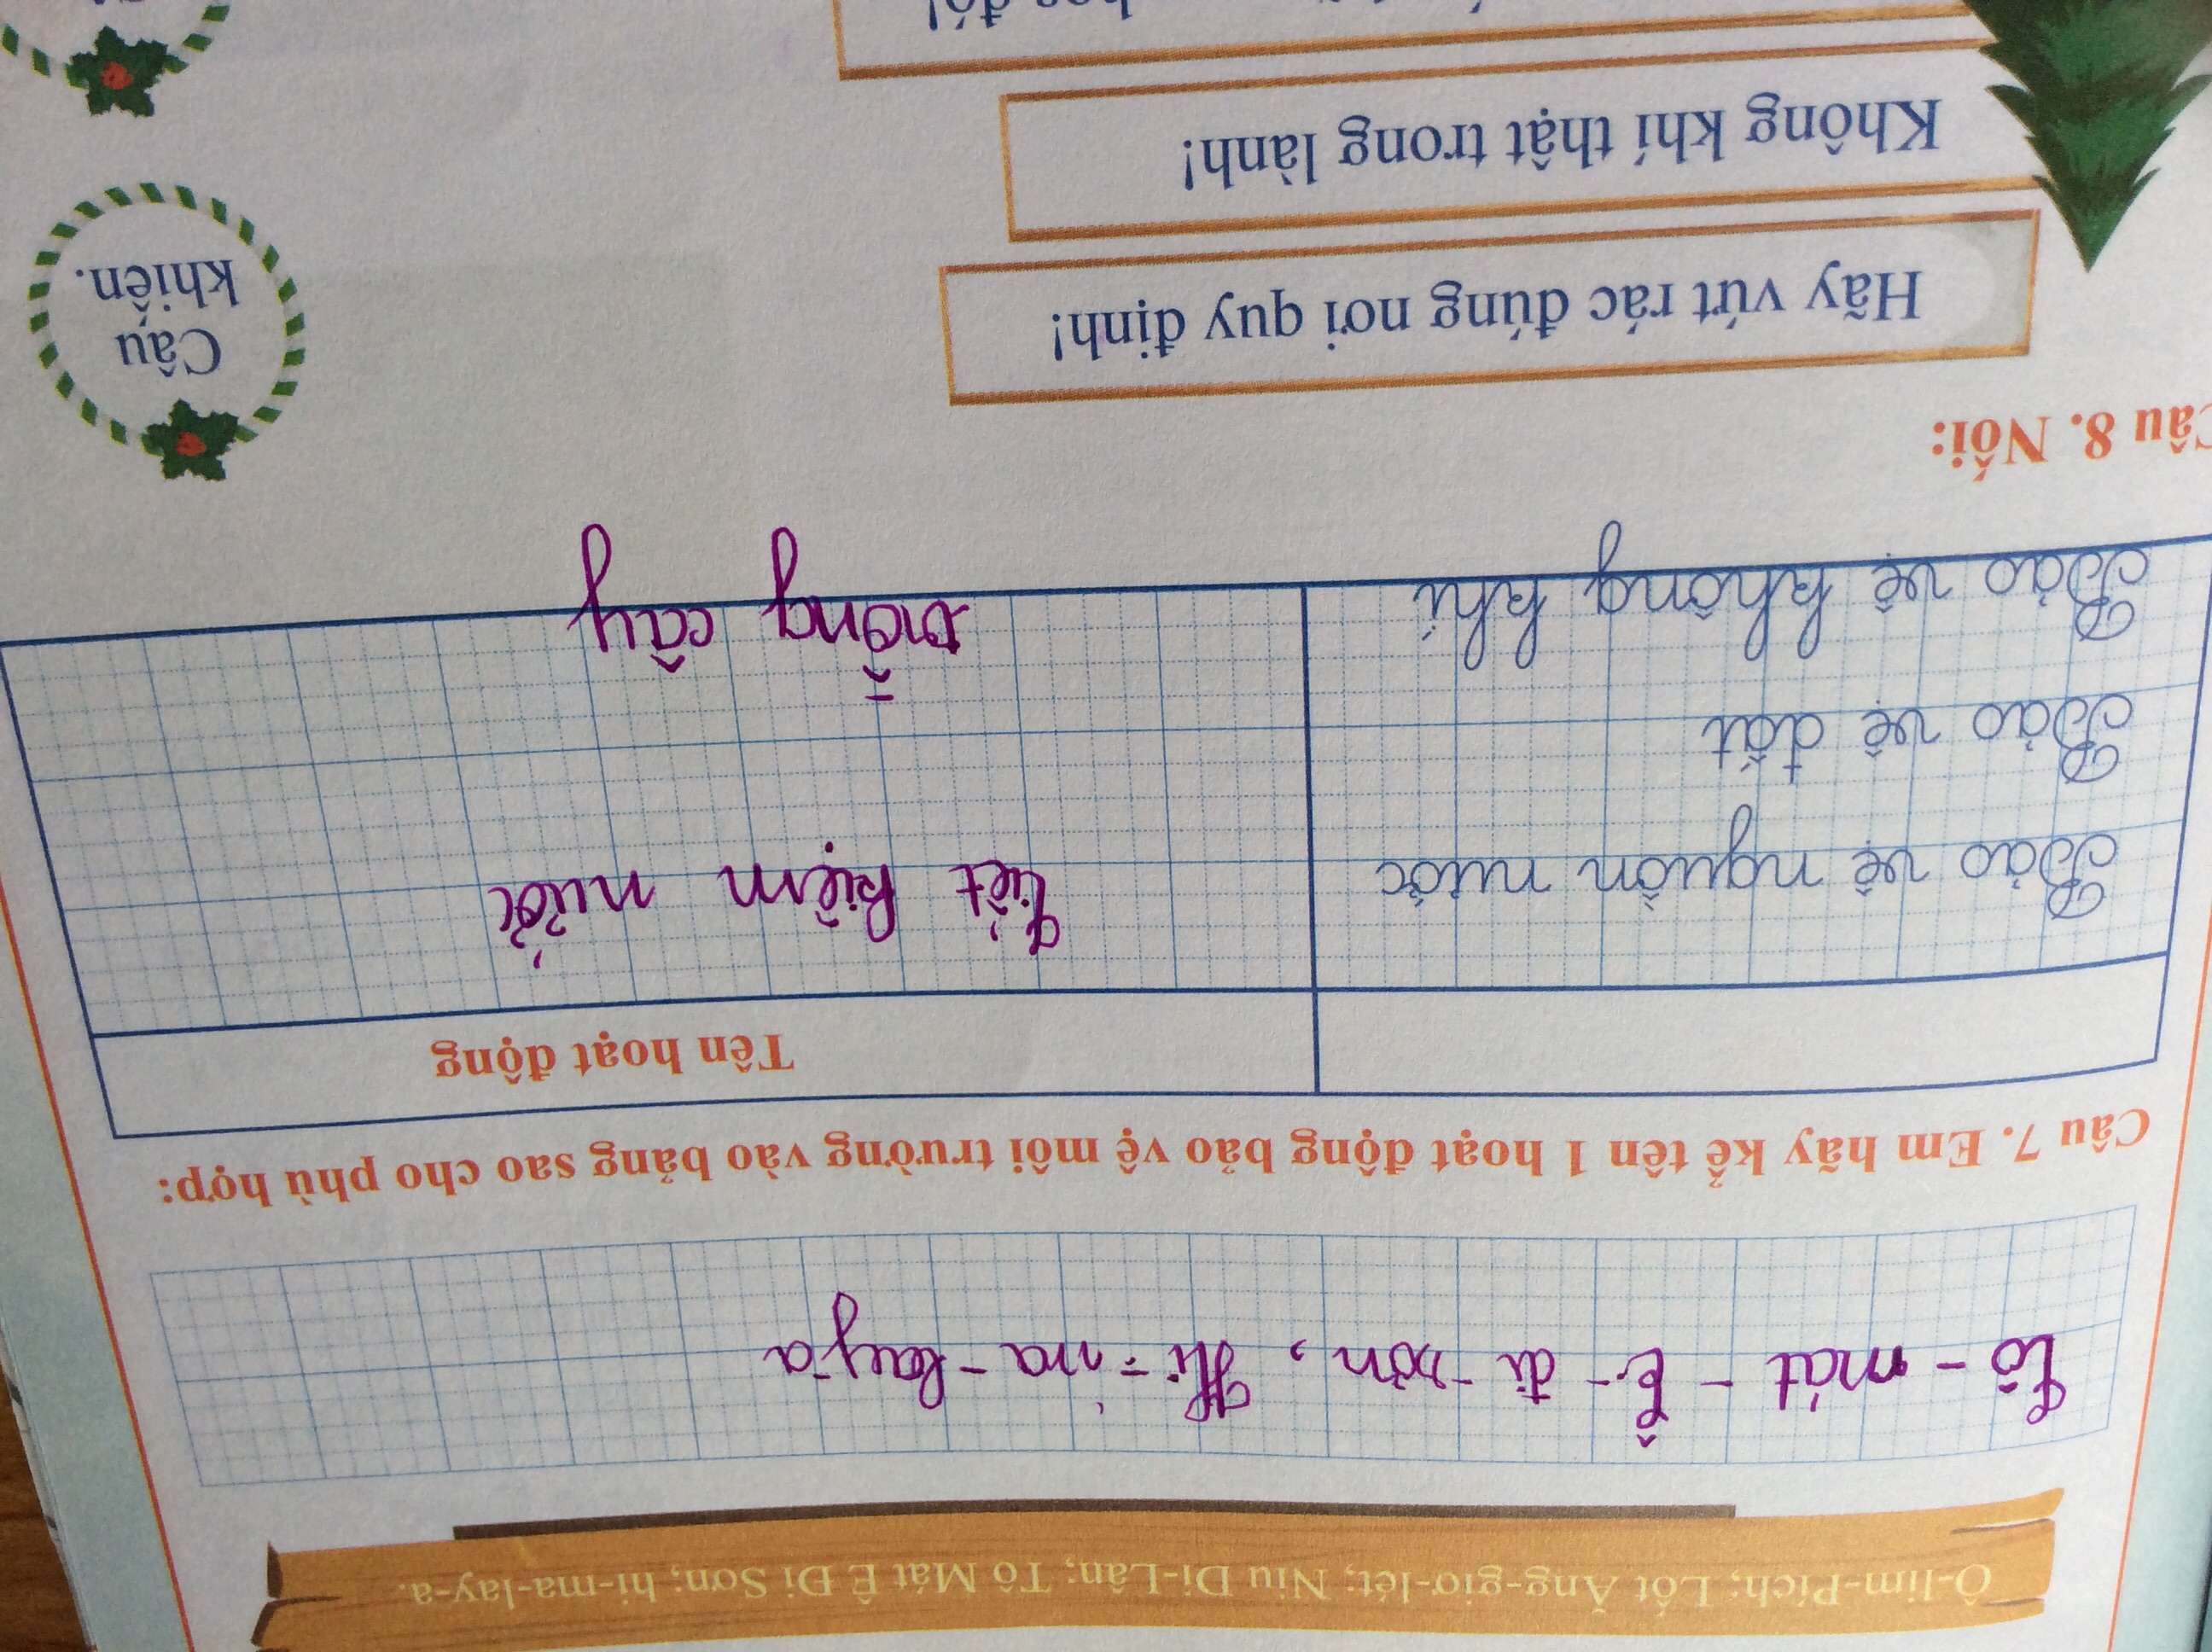 Ô-lim-Pích; Lốt Ăng-giơ-lét; Niu Di-Lân; Tô Mát Ê Đi Sơn; hi-ma-lay-a.
Tô - mát - Ê - đi - xơn, Hi - ma - lay-a
Câu 7. Em hãy kể tên 1 hoạt động bảo vệ môi trường vào bảng sao cho phù hợp:
Tên hoạt động
Bảo vệ nguồn nước
tiết kiệm nước
Bảo vệ đất
Bảo vệ không khí
trồng cây
Câu 8. Nối:
Hãy vứt rác đúng nơi quy định!
Câu
khiến.
Không khí thật trong lành!
đó!